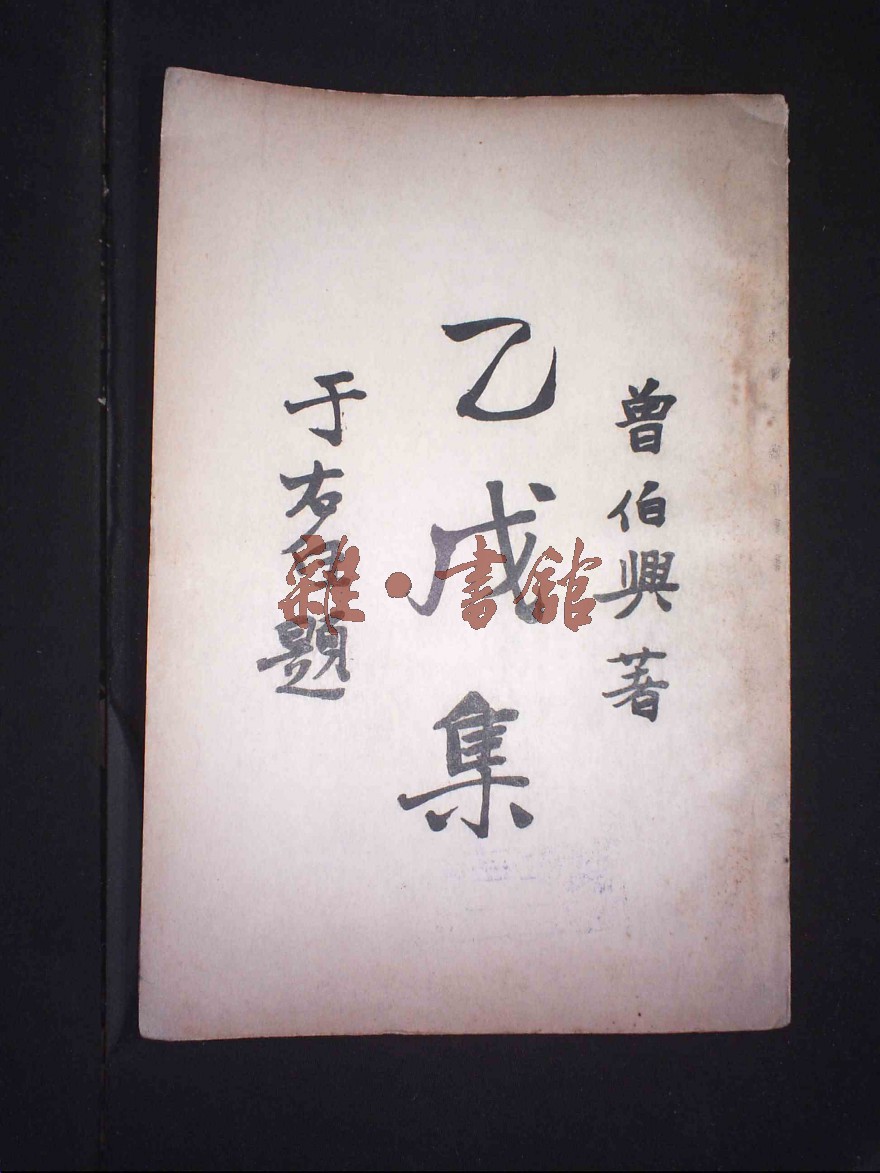 曾伯興著
乙戌集
于右任題
雜·書館